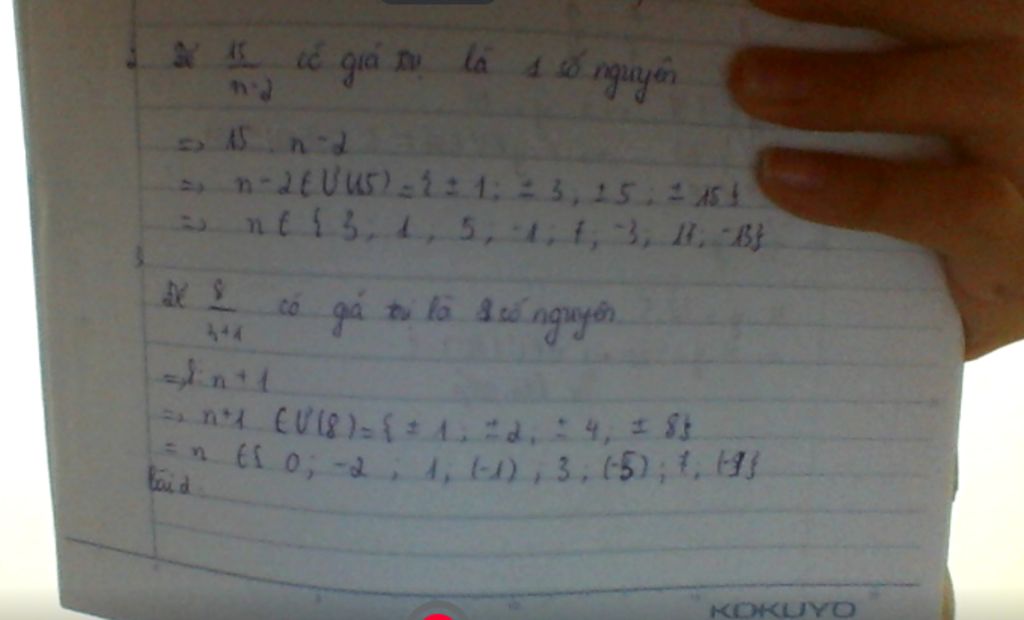 Để 15/n-2 có giá trị là 1 số nguyên
=> 15 ⋮ n-2
=> n-2 ∈ Ư(15) = { ± 1; ± 3, ± 5; ± 15}
=> n ∈ { 3, 1, 5, -1, 7, -3, 17, -13}
Để 8/n+1 có giá trị là 1 số nguyên
=> 8 ⋮ n+1
=> n+1 ∈ Ư(8) = { ± 1; ± 2, ± 4, ± 8}
= n ∈ { 0; -2; 1, (-1), 3, (-5); 7, (-9}
bài 2
KOKUYO